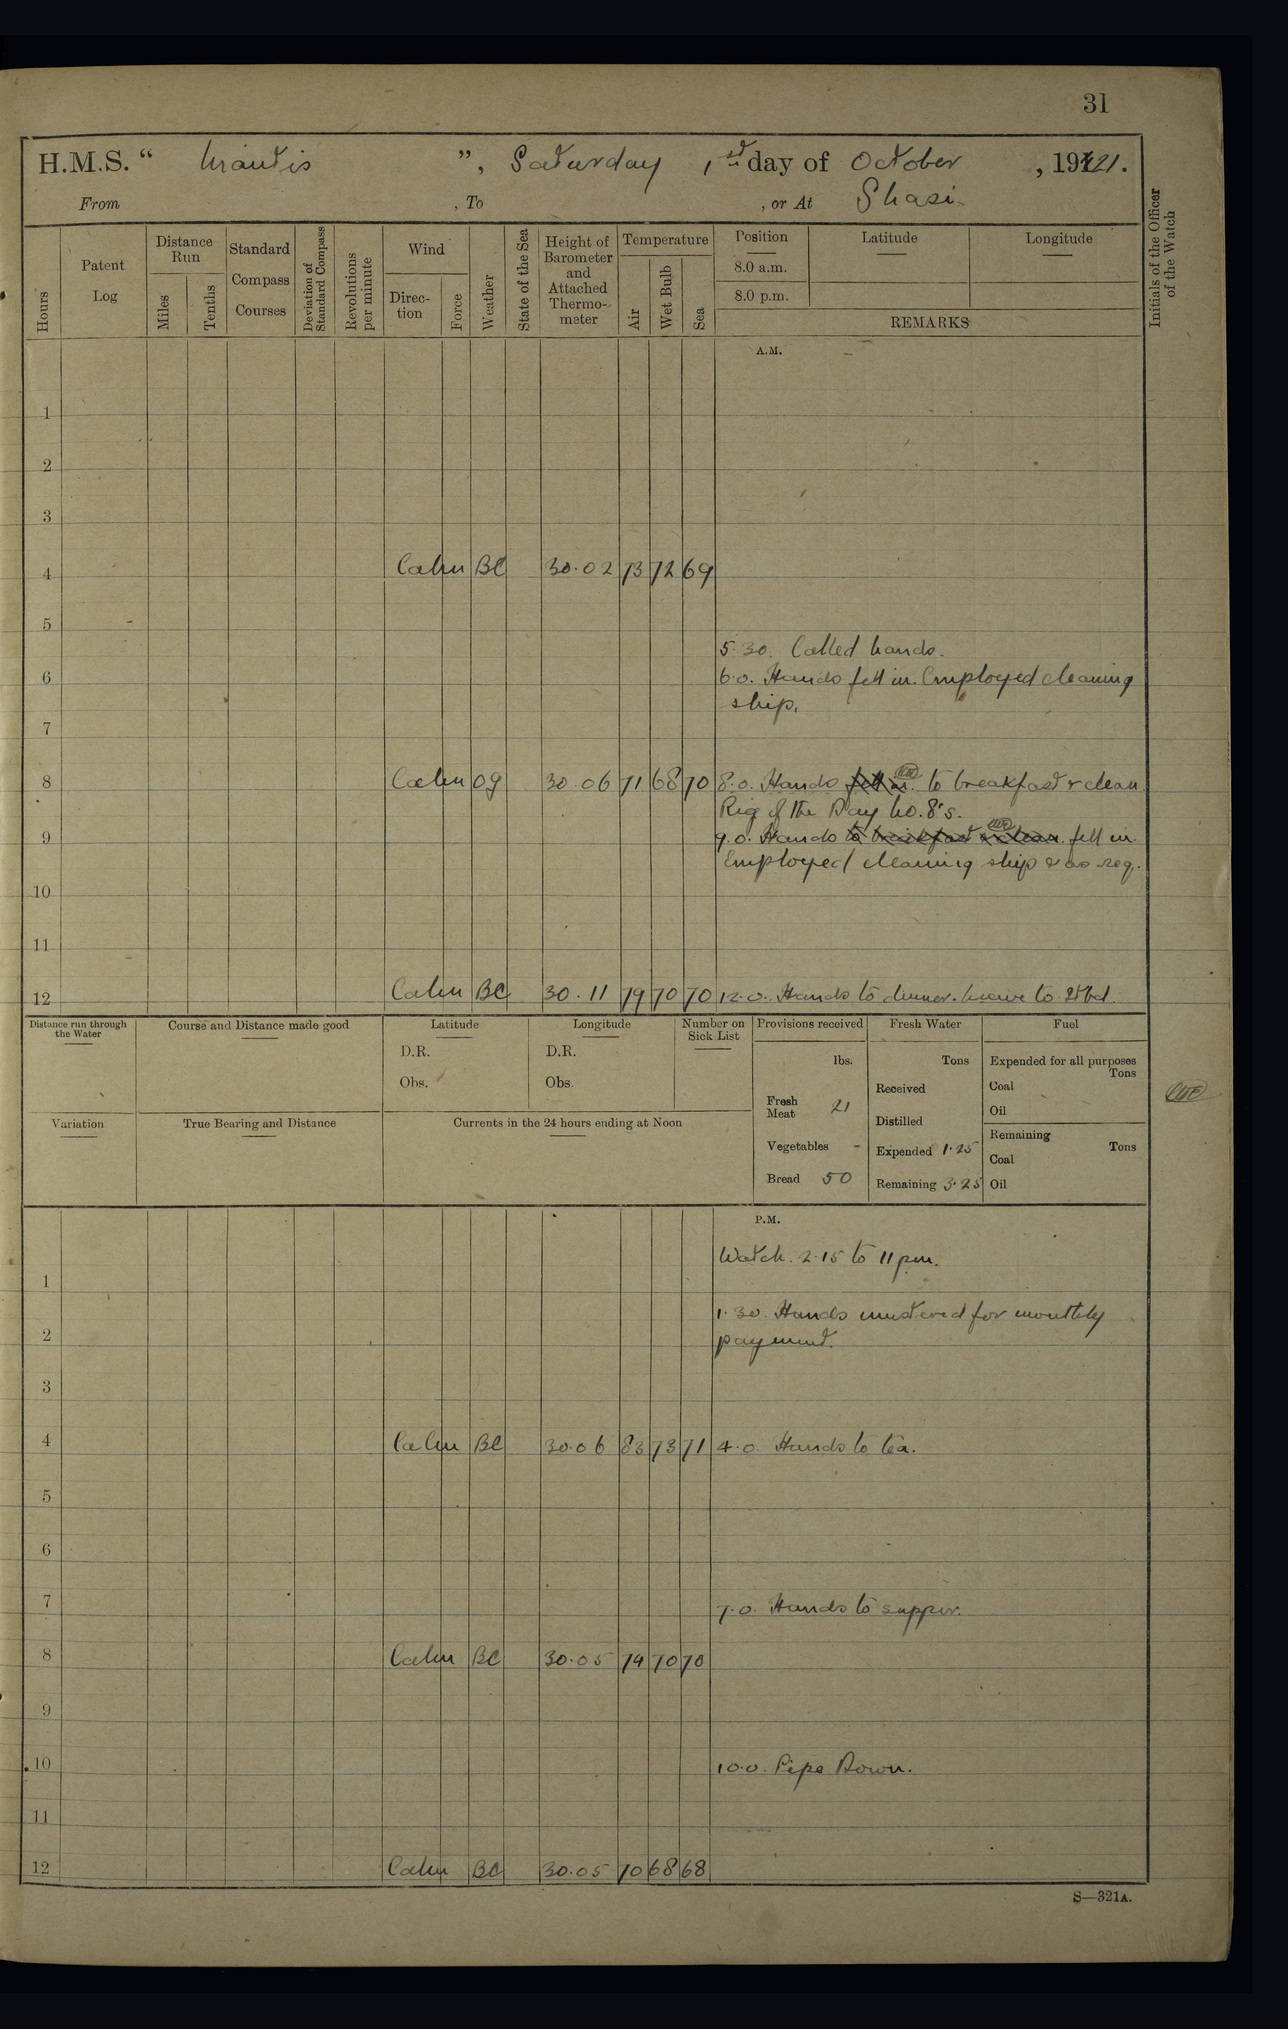 31
H.M.S. “ Mantis ”, Saturday 1st day of October , 1921.
From , To , or At Shasi.
Hours
Patent Log
Distance Run
Miles
Tenths
Standard Compass Courses
Deviation of Standard Compass
Revolutions per minute
Wind
Direction
Force
Weather
State of the Sea
Height of Barometer and Attached Thermo-meter
Temperature
Air
Wet Bulb
Sea
Position
8.0 a.m.
8.0 p.m.
Latitude
Longitude
REMARKS
Initials of the Officer of the Watch
A.M.
1
2
3
4 Calm BC 30.02 73 72 69
5
5.30. Called hands.
6 6.0. Hands fell in. Employed cleaning
ship.
7
8 Calm og 30.06 71 68 70 8.0. Hands fell in. to breakfast & clean
Rig of the Day No. 8's.
9 9.0. Hands to breakfast & clean. fell in.
Employed cleaning ship & as req.
10
11
12 Calm BC 30.11 79 70 70 12.0. Hands to dinner. Leave to Stbd.
Distance run through the Water
Course and Distance made good
Latitude
D.R.
Obs.
Longitude
D.R.
Obs.
Number on Sick List
Provisions received
lbs.
Fresh Meat 21
Vegetables -
Bread 50
Fresh Water
Tons
Received
Distilled
Expended 1.25
Remaining 3.25
Fuel
Expended for all purposes
Tons
Coal
Oil
Remaining
Tons
Coal
Oil
Variation
True Bearing and Distance
Currents in the 24 hours ending at Noon
P.M.
Watch. 2.15 to 11 pm.
1
1.30. Hands mustered for monthly
2 payment.
3
4 Calm BC 30.06 83 73 71 4.0. Hands to tea.
5
6
7 7.0. Hands to supper.
8 Calm BC 30.05 74 70 70
9
10 10.0. Pipe Down.
11
12 Calm BC 30.05 70 68 68
S—321A.